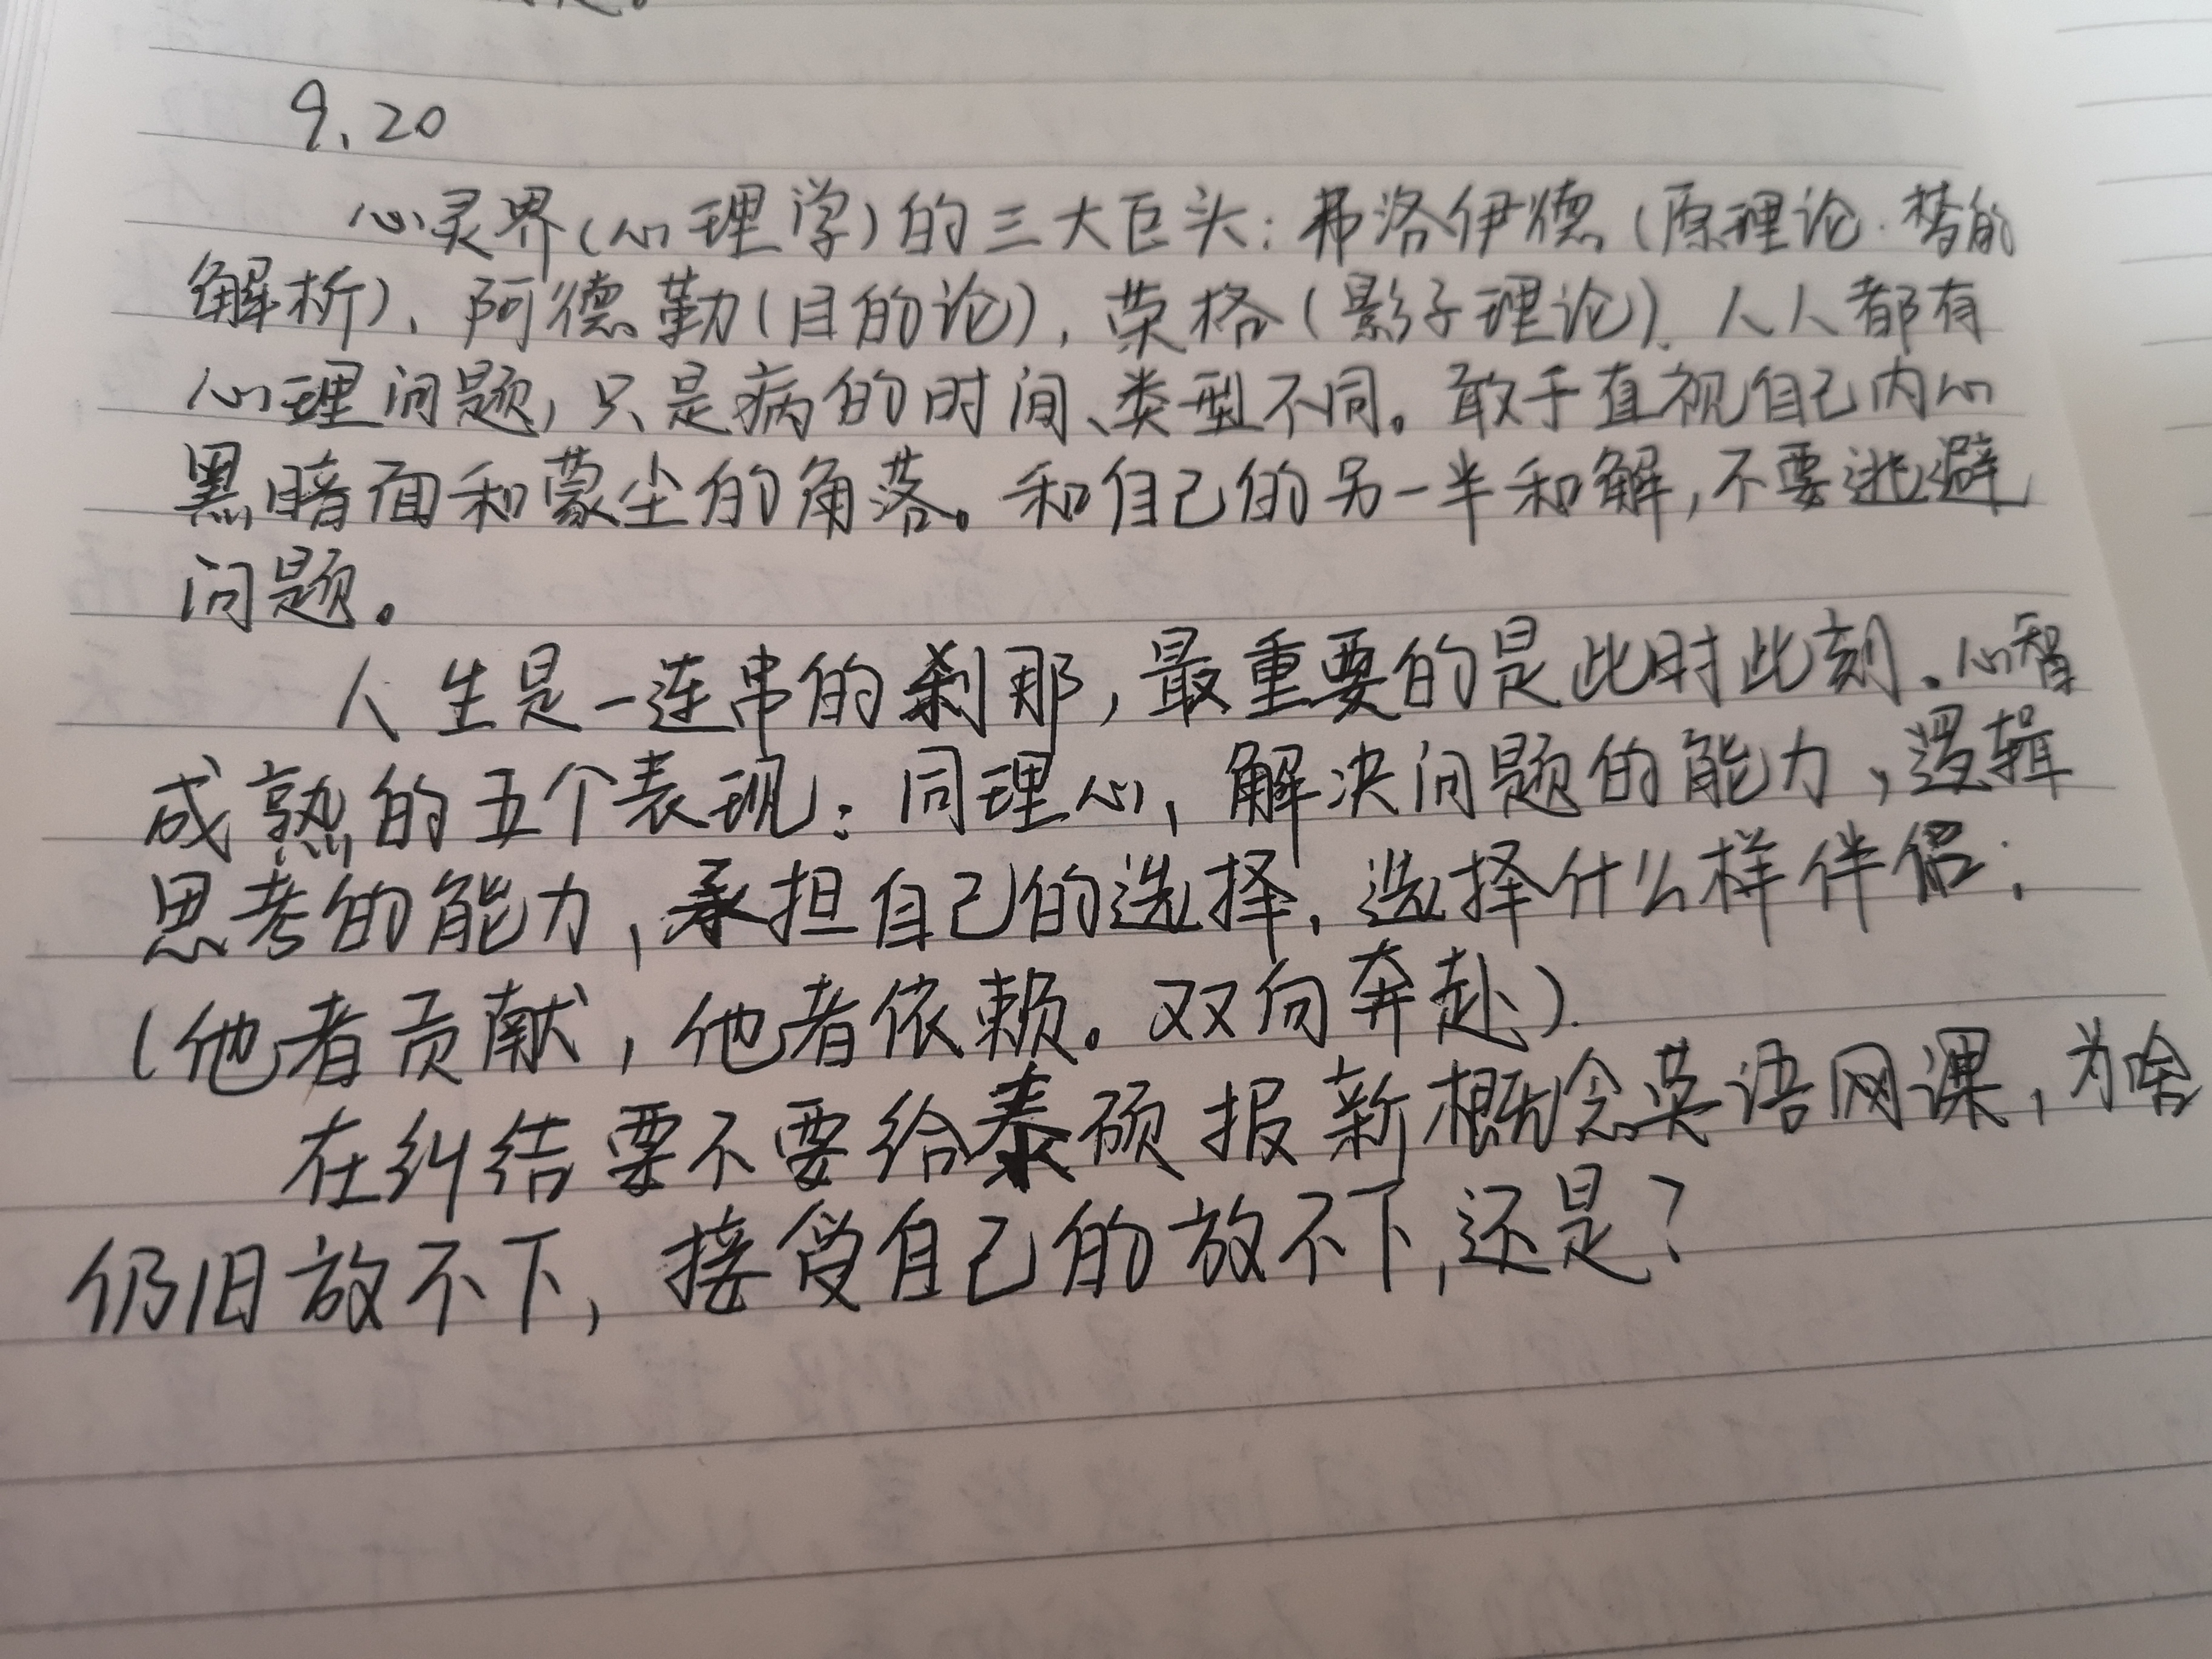 9.20
心灵界(心理学)的三大巨头:弗洛伊德(原理论.梦的
解析)、阿德勤(目的论),荣格(影子理论).人人都有
心理问题,只是病的时间、类型不同。敢于直视自己内心
黑暗面和蒙尘的角落。和自己的另一半和解,不要逃避
问题。
人生是一连串的刹那,最重要的是此时此刻.心智
成熟的五个表现:同理心,解决问题的能力,逻辑
思考的能力,承担自己的选择,选择什么样伴侣;
(他者贡献,他者依赖。双向奔赴).
在纠结要不要给泰硕报新概念英语网课,为啥
仍旧放不下,接受自己的放不下,还是?